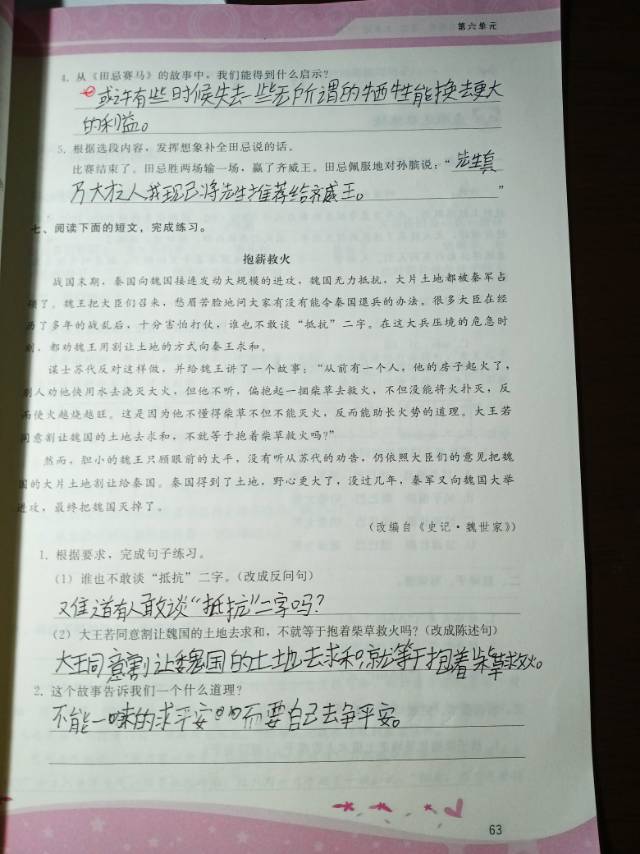 第六单元
4. 从《田忌赛马》的故事中，我们能得到什么启示？
或许有些时候失去一些无所谓的牺牲能换去更大
的利益。
5. 根据选段内容，发挥想象补全田忌说的话。
比赛结束了。田忌胜两场输一场，赢了齐威王。田忌佩服地对孙膑说：“先生真
乃大才之人我现已将先生推荐给齐威王。”
七、阅读下面的短文，完成练习。
抱薪救火
战国末期，秦国向魏国接连发动大规模的进攻，魏国无力抵抗，大片土地都被秦军占
领了。魏王把大臣们召来，愁眉苦脸地问大家有没有能令秦国退兵的办法。很多大臣在经
历了多年的战乱后，十分害怕打仗，谁也不敢谈“抵抗”二字。在这大兵压境的危急时
刻，都劝魏王用割让土地的方式向秦王求和。
谋士苏代反对这样做，并给魏王讲了一个故事：“从前有一个人，他的房子起火了，
别人劝他快用水去浇灭大火，但他不听，偏抱起一捆柴草去救火，不但没能将火扑灭，反
而使火越烧越旺。这是因为他不懂得柴草不但不能灭火，反而能助长火势的道理。大王若
同意割让魏国的土地去求和，不就等于抱着柴草救火吗？”
然而，胆小的魏王只顾眼前的太平，没有听从苏代的劝告，仍依照大臣们的意见把魏
国的大片土地割让给秦国。秦国得到了土地，野心更大了，没过几年，秦军又向魏国大举
进攻，最终把魏国灭掉了。
（改编自《史记·魏世家》）
1. 根据要求，完成句子练习。
（1）谁也不敢谈“抵抗”二字。（改成反问句）
难道有人敢谈“抵抗”二字吗？
（2）大王若同意割让魏国的土地去求和，不就等于抱着柴草救火吗？（改成陈述句）
大王同意割让魏国的土地去求和，就等于抱着柴草救火。
2. 这个故事告诉我们一个什么道理？
不能一味的求平安 而要自己去争平安。
63